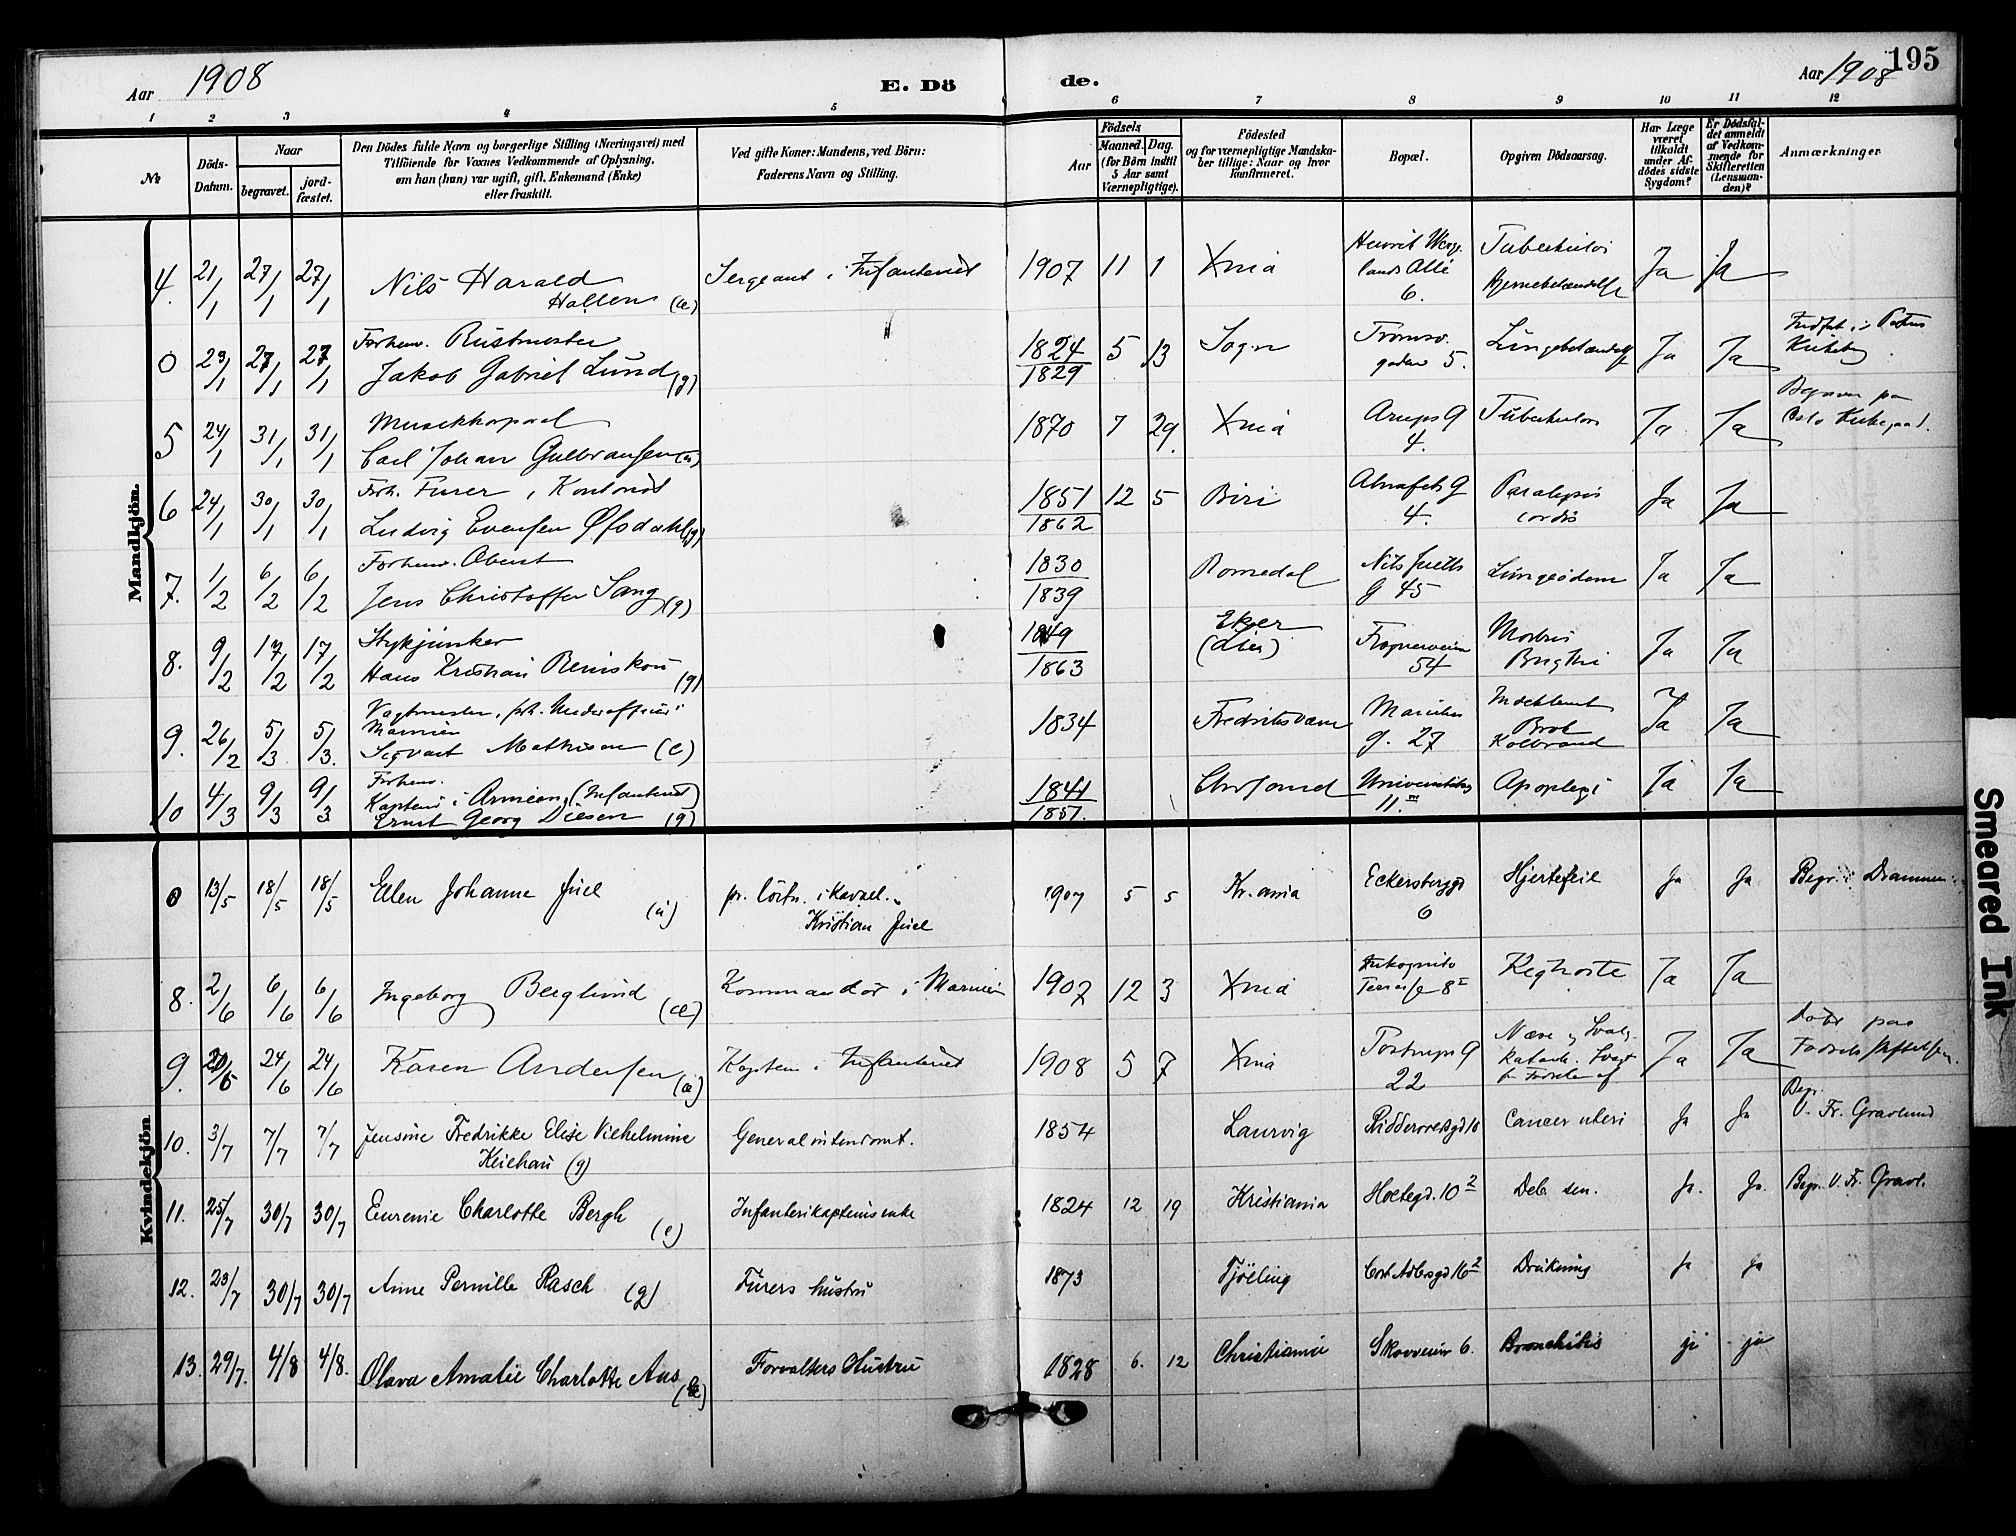 195
Aar 1908
E. Dö
de.
Aar 1908
1 2 3 4 5 6 7 8 9 10 11 12
№
Döds-Datum.
Naar
begravet.
jord-fæstet.
Den Dödes fulde Navn og borgerlige Stilling (Næringsvei) med
Tilföiende for Voxnes Vedkommende af Oplysning,
om han (hun) var ugift, gift, Enkemand (Enke)
eller fraskilt.
Ved gifte Koner: Mandens, ved Börn:
Faderens Navn og Stilling.
Födsels
Aar
Maaned. Dag.
(for Börn indtil
5 Aar samt
Værnepligtige).
Födested
og for værnepligtige Mandska-
ber tillige: Naar og hvor
konfirmeret.
Bopæl.
Opgiven Dödsaarsag.
Har Læge
været
tilkaldt
under Af-
dödes sidste
Sygdom?
Er Dödsfal-
det anmeldt
af Vedkom-
mende for
Skifteretten
(Lensman-
den)?
Anmærkninger
Mandkjön.
4. 21/1 27/1 27/1 Nils Harald Sergeant i Infanteriet 1907 11 1 Xnia 6. Tuberkulos Hjernebetændelse Ja Ja
0 23/1 27/1 27/1 Forhenv. Rustmester
Jakob Gabriel Lund (g) 1824/1829 5 13 Sogn Tromsø gaden 5. Lungebetændelse Ja Ja
5 24/1 31/1 31/1
Carl Johan Gulbransen 1870 7 29. Xnia Arups G 4. Tuberkulos Ja Ja Oslo Kirkegaard.
6 24/1 30/1 30/1 Forh. Furer i
Ludvig Evensen (g) 1851/1862 12 5 Biri 4. Paralysis cordis Ja Ja
7. 1/2 6/2 6/2 Forhenv. Oberst
Jens Christoffer Lang (g) 1830/1839 Romedal G 45 Lungeödem Ja Ja
8. 9/2 17/2 17/2 Stykjunker
Hans Kristian (g) 1849/1863 Eker (Lier) Frognerveien 54 Morbus Brighti Ja Ja
9. 26/2 5/3 5/3. Vagtmester, Marinen
Sigvart Mathisen (e) 1834 Fredriksværn g. 27 Indeklemt Brok Koldbrand Ja Ja
10 4/3 9/3 9/3 Forhenv.
Kaptein i Armeen (Infanteriet)
Ernst Georg Diesen (g) 1841/1857. Chrsand 11. Apoplexi Ja Ja
Kvindekjön
0 13/5 18/5 18/5 Ellen Johanne Juel (u) pr. löitn. i kavael.
Kristian Juel 1907 5 5 Kr.ania Eckersbergsgd 6 Hjertefeil Ja Ja Begr. i Drammen
8. 2/6 6/6 6/6 Ingeborg Berglund Kommandör i Marinen 1907 12 3 Xnia Inkognito Terrasse 8 Kighoste Ja Ja
9. 20/6 24/6 24/6 Karen Andersen (u) Kaptein i Infanteriet 1908 5 7 Xnia Tostrups G 22 Ja Ja Födt paa Födselsstiftelsen.
10. 3/7 7/7 7/7 Jensine Fredrikke Elise Vilhelmine
Keilhau (g) Generalintendant. 1854 Laurvig Riddervoldsgd 10 Cancer uteri Ja Ja Begr. V. Fr. Gravlund
11. 25/7 30/7 30/7 Eurenie Charlotte Bergh (e) Infanterikapteins enke 1824 12 19 Kristiania Holtegd. 10² Deb. sen. Ja. Ja. Begr. V. Fr. Gravl.
12. 23/7 30/7 30/7 Anne Pernille Rasch (g) Furers hustru 1873 Tjölling Cort Adlersgd 16² Drukning Ja Ja
13. 29/7. 4/8 4/8. Olava Amalie Charlotte Aas Forvalters Hustru 1828 6. 12 Christiania Skovveien 6. Bronchitis ja ja
Smeared Ink